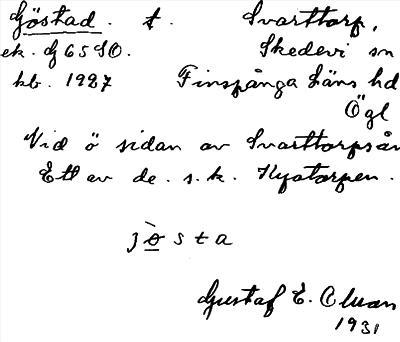 Göstad. t. Svarttorp,
ek. bl 65 SO. Skedevi sn
kb. 1927 Finspånga läns hd
Ögl
Vid ö sidan av Svarttorpsån
Ett av de. s. k. Nyatorpen.
jö̀sta
Gustaf E. Olman
1931